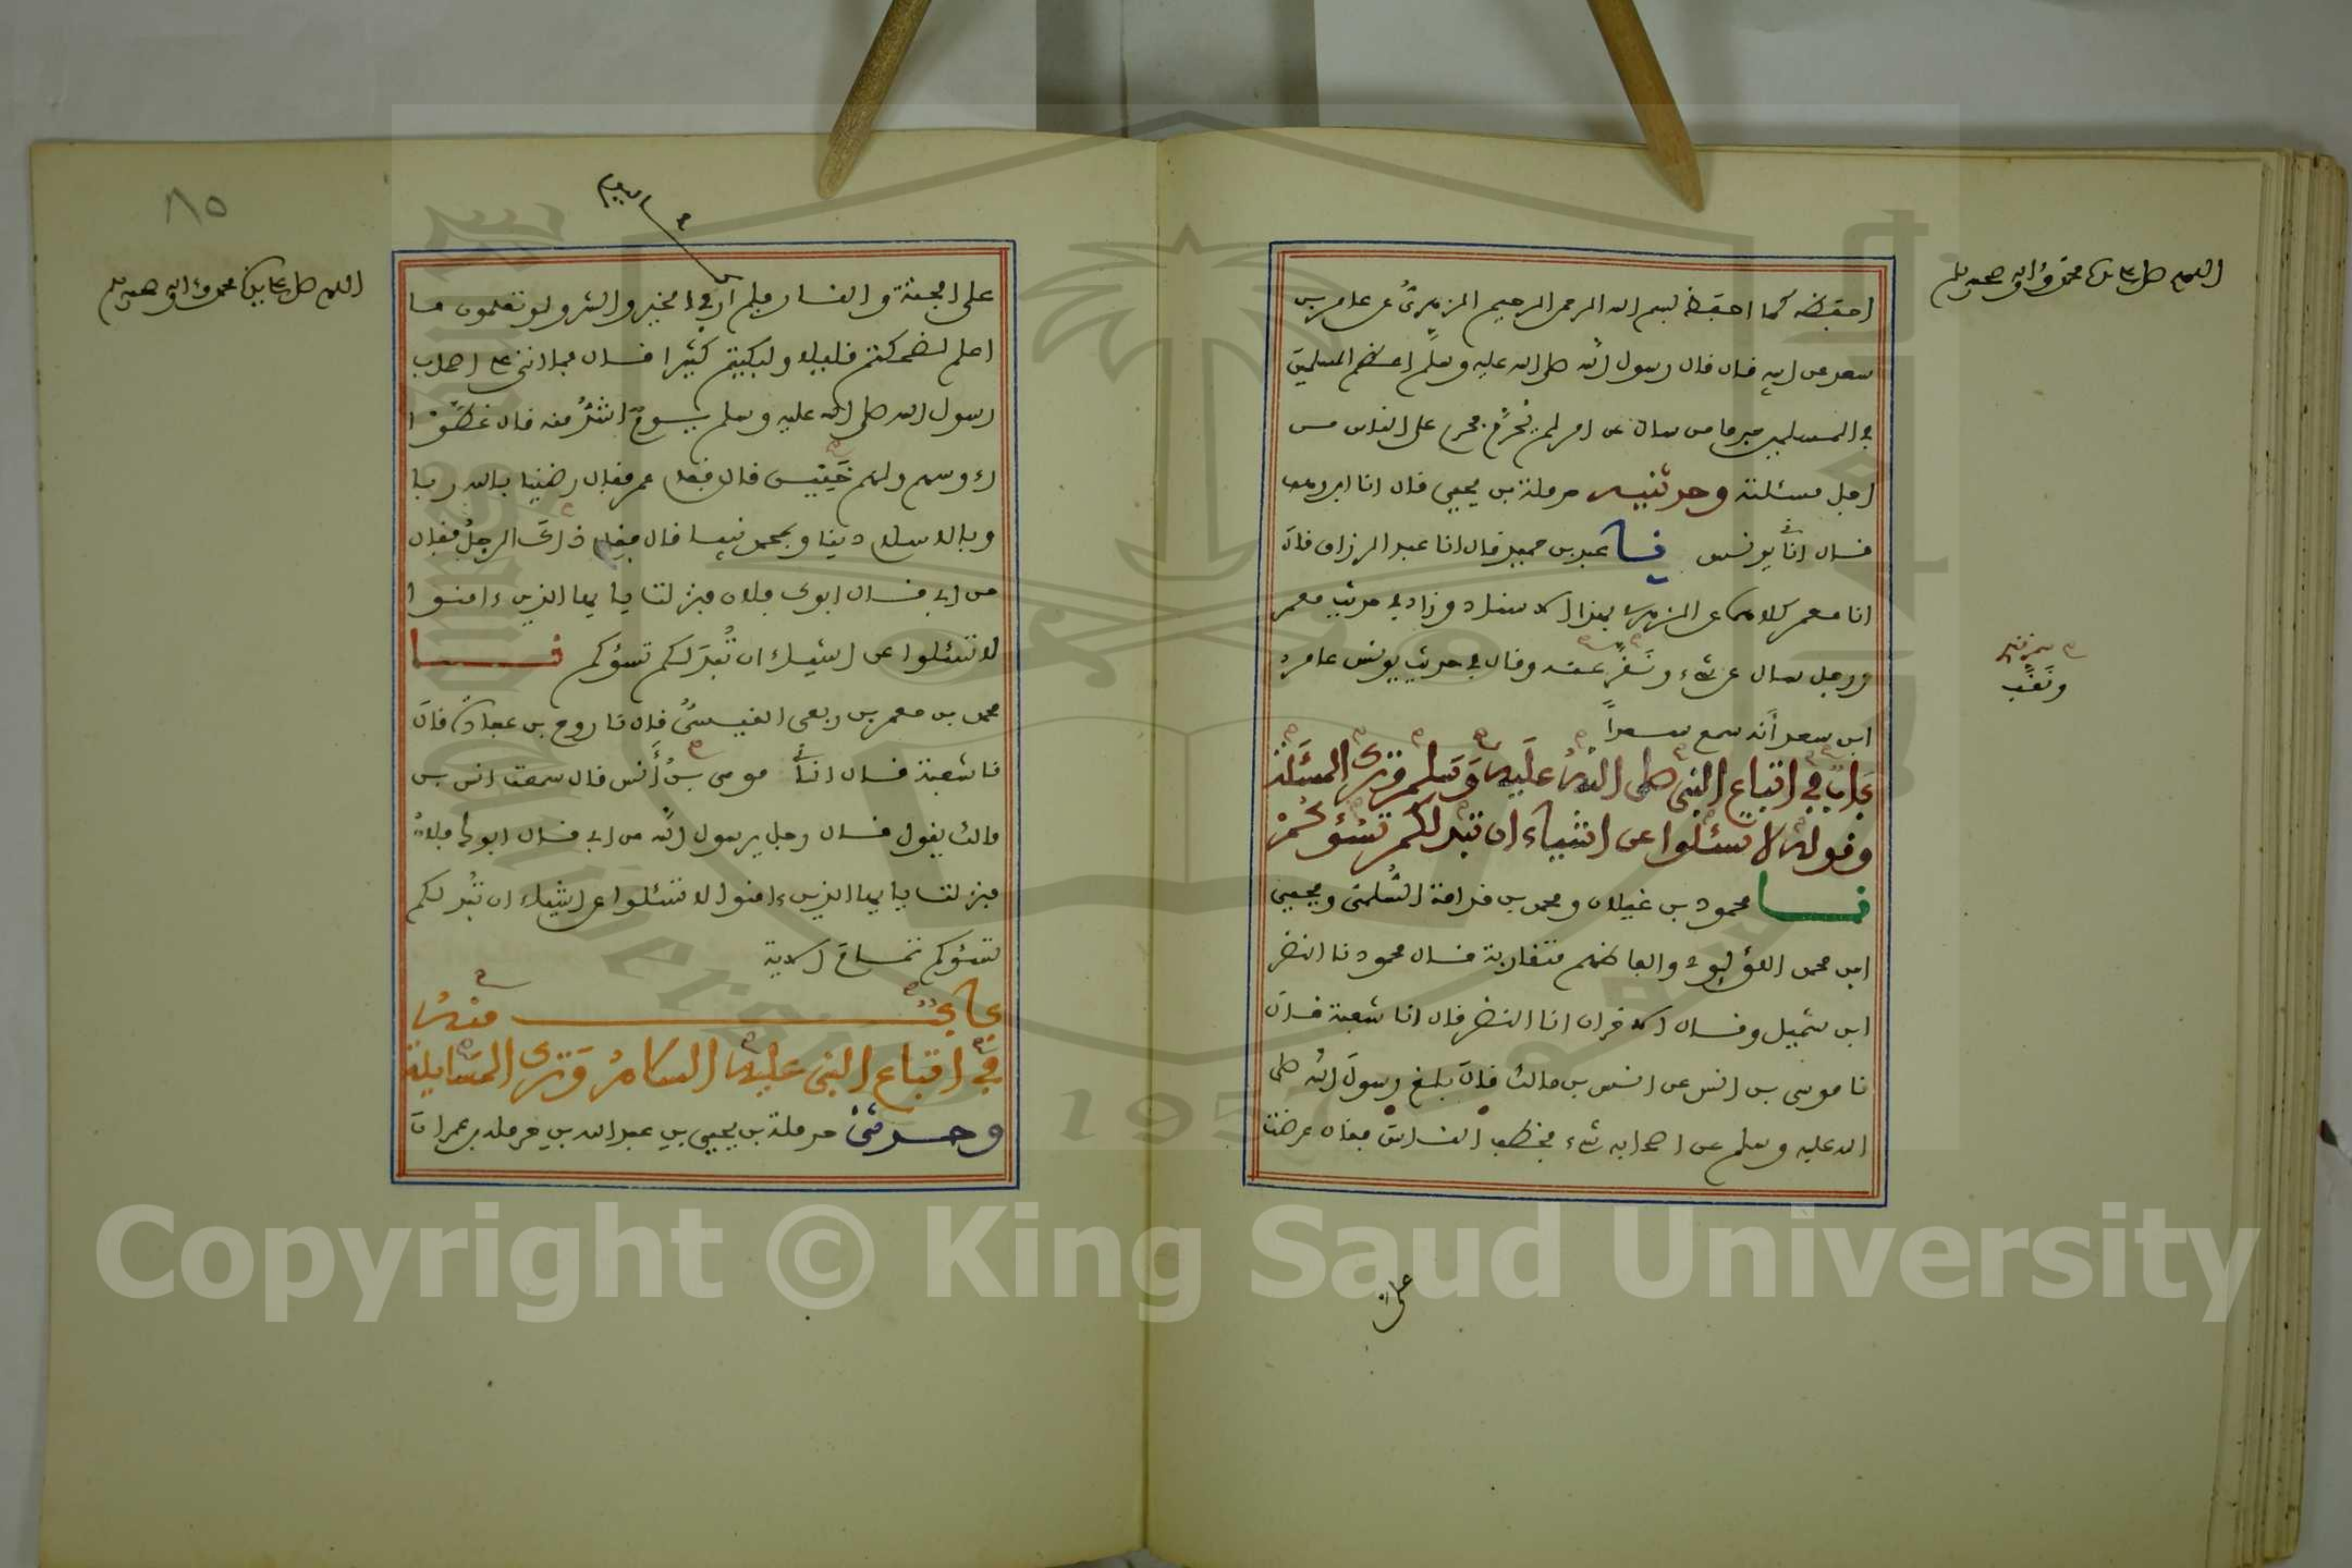 اللهم صل على سيدنا محمد وءاله وصحبه وسلم
احفظه كما احفظ بسم الله الرحمن الرحيم الزهري عن عامر بن
سعد عن ابيه قال قال رسول الله صلى الله عليه وسلم اعظم المسلمين
في المسلمين جرما من سال عن امر لم يحرم فحرم على الناس من
اجل مسئلته وحدثنيه حرملة بن يحيى قال انا ابن وهب
قال انا يونس نا عبد بن حميد قال انا عبد الرزاق قال
انا معمر كلاهما عن الزهري بهذا الاسناد وزاد في حديث معمر
ورجل سال عن شيء ونقر عنه وقال في حديث يونس عامر
ابن سعد أنه سمع سعداً
ونقب
باب في اتباع النبي صلى الله عليه وسلم وترك المسئلة
وقوله لا تسئلوا عن اشياء ان تبد لكم تسؤكم
نا محمود بن غيلان ومحمد بن قدامة السلمي ويحيى
ابن محمد اللؤلؤي والفاظهم متقاربة قال محمود نا النضر
ابن شميل وقال الاخران انا النضر قال انا شعبة قال
نا موسى بن انس عن انس بن مالك قال بلغ رسول الله صلى
الله عليه وسلم عن اصحابه شيء فخطب الناس فقال عرضت
على
٨٥
اللهم صل على سيدنا محمد وءاله وصحبه وسلم
اليوم
على الجنة والنار فلم ار في الخير والشر ولو تعلمون ما
اعلم لضحكتم قليلا ولبكيتم كثيرا قال فما اتى على اصحاب
رسول الله صلى الله عليه وسلم يوم اشد منه قال غطوا
رءوسهم ولهم خنين قال فقام عمر فقال رضينا بالله ربا
وبالاسلام دينا وبمحمد نبيا قال فقام ذاك الرجل فقال
من ابي قال ابوك فلان فنزلت يا ايها الذين ءامنوا
لا تسئلوا عن اشياء ان تبد لكم تسؤكم نا
محمد بن معمر بن ربعي القيسي قال نا روح بن عبادة قال
نا شعبة قال انا موسى بن أنس قال سمعت انس بن
مالك يقول قال رجل يرسول الله من ابي قال ابوك فلان
فنزلت يا ايها الذين ءامنوا لا تسئلوا عن اشياء ان تبد لكم
تسؤكم تمام الاية
باب منه
في اتباع النبي عليه السلام وترك المسايلة
وحدثني حرملة بن يحيى بن عبد الله بن حرملة بن عمران
Copyright © King Saud University
1957